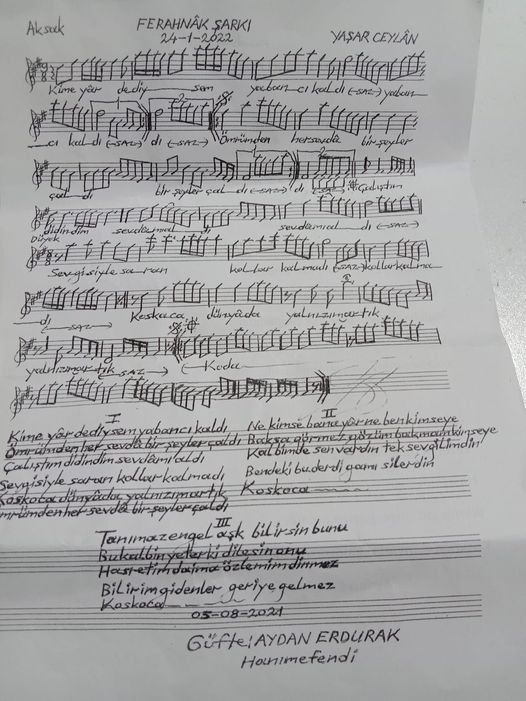 Aksak
FERAHNÂK ŞARKI
24-1-2022
YAŞAR CEYLÂN
Kime yâr dediy sem yaban cı kal dı (-SAZ-) yaban
cı kal dı (-SAZ-) dı (-SAZ-) Ömrümden hersevdâ bir şeyler
çal dı bir şeyler çal dı (-SAZ-) dı (-SAZ-) Çalıştım
didindim sevdâmıal dı sevdâmıal dı (-SAZ-)
Düyek
Sevgisiyle saran kollar kalmadı (-SAZ-) kollar kalma
dı (-SAZ-) Koskoca dünyâda yalnızımartık
yalnızımartık (-SAZ-) (-Koda-
I
Kime yâr dediysem yabancı kaldı
Ömrümden her sevdâ bir şeyler çaldı
Çalıştım didindim sevdâmı aldı
Sevgisiyle saran kollar kalmadı
Koskoca dünyâda yalnızım artık
Ömrümden her sevdâ bir şeyler çaldı
II
Ne kimse bana yâr ne ben kimseye
Baksa görmez gözüm bakmam kimseye
Kalbimde sen vardın tek sevgilimdin
Bendeki bu derdi gamı silerdin
Koskoca
III
Tanımaz engel aşk bilirsin bunu
Bu kalbin yeter ki dilesin onu
Hasretim daima özlemim dinmez
Bilirim gidenler geriye gelmez
Koskoca
05-08-2021
Güfte: AYDAN ERDURAK
Hanımefendi